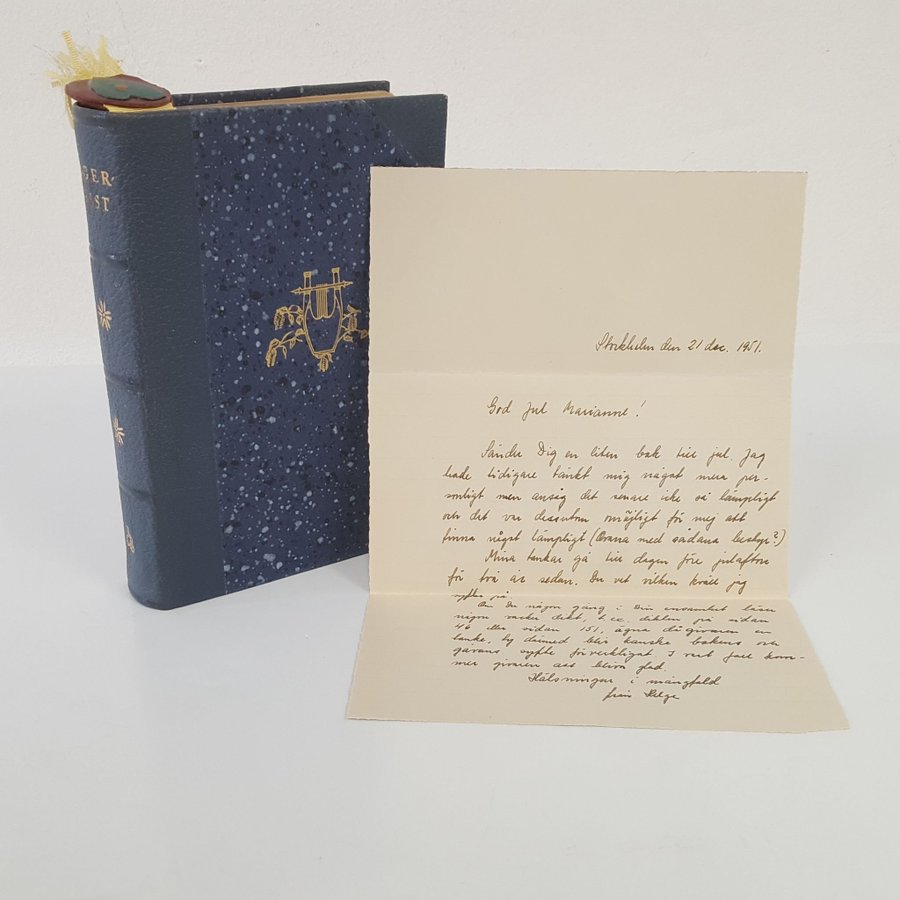 GER
IST
Stockholm den 21 dec. 1951.
God Jul Marianne!
Sänder Dig en liten bok till jul. Jag
hade tidigare tänkt mig något mera per-
sonligt men ansåg det senare icke så lämpligt
och det var dessutom omöjligt för mej att
finna något lämpligt (Ovana med sådana bestyr?)
Mina tankar gå till dagen före julafton
för två år sedan. Du vet vilken kväll jag
syftar på.
Om Du någon gång i Din ensamhet läser
någon vacker dikt, t.ex. dikten på sidan
46 eller sidan 151, ägna då givaren en
tanke, ty därmed blir kanske bokens och
gåvans syfte förverkligat. I vart fall kom-
mer givaren att bliva glad.
Hälsningar i mångfald
från Helge